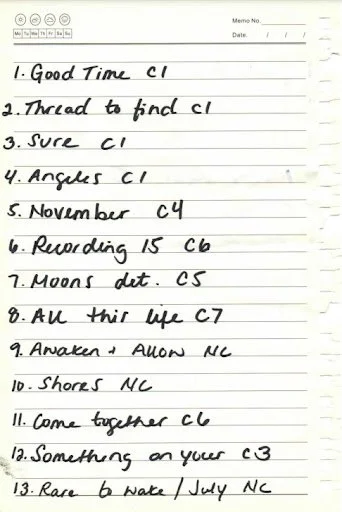 Memo No.
Mo Tu We Th Fr Sa Su
Date. / / /
1. Good Time C1
2. Thread to find C1
3. Sure C1
4. Angeles C1
5. November C4
6. Recording 15 C6
7. Moons det. C5
8. All this life C7
9. Awaken + Allow NC
10. Shores NC
11. Come together C6
12. Something on your C3
13. Rare to wake / July NC